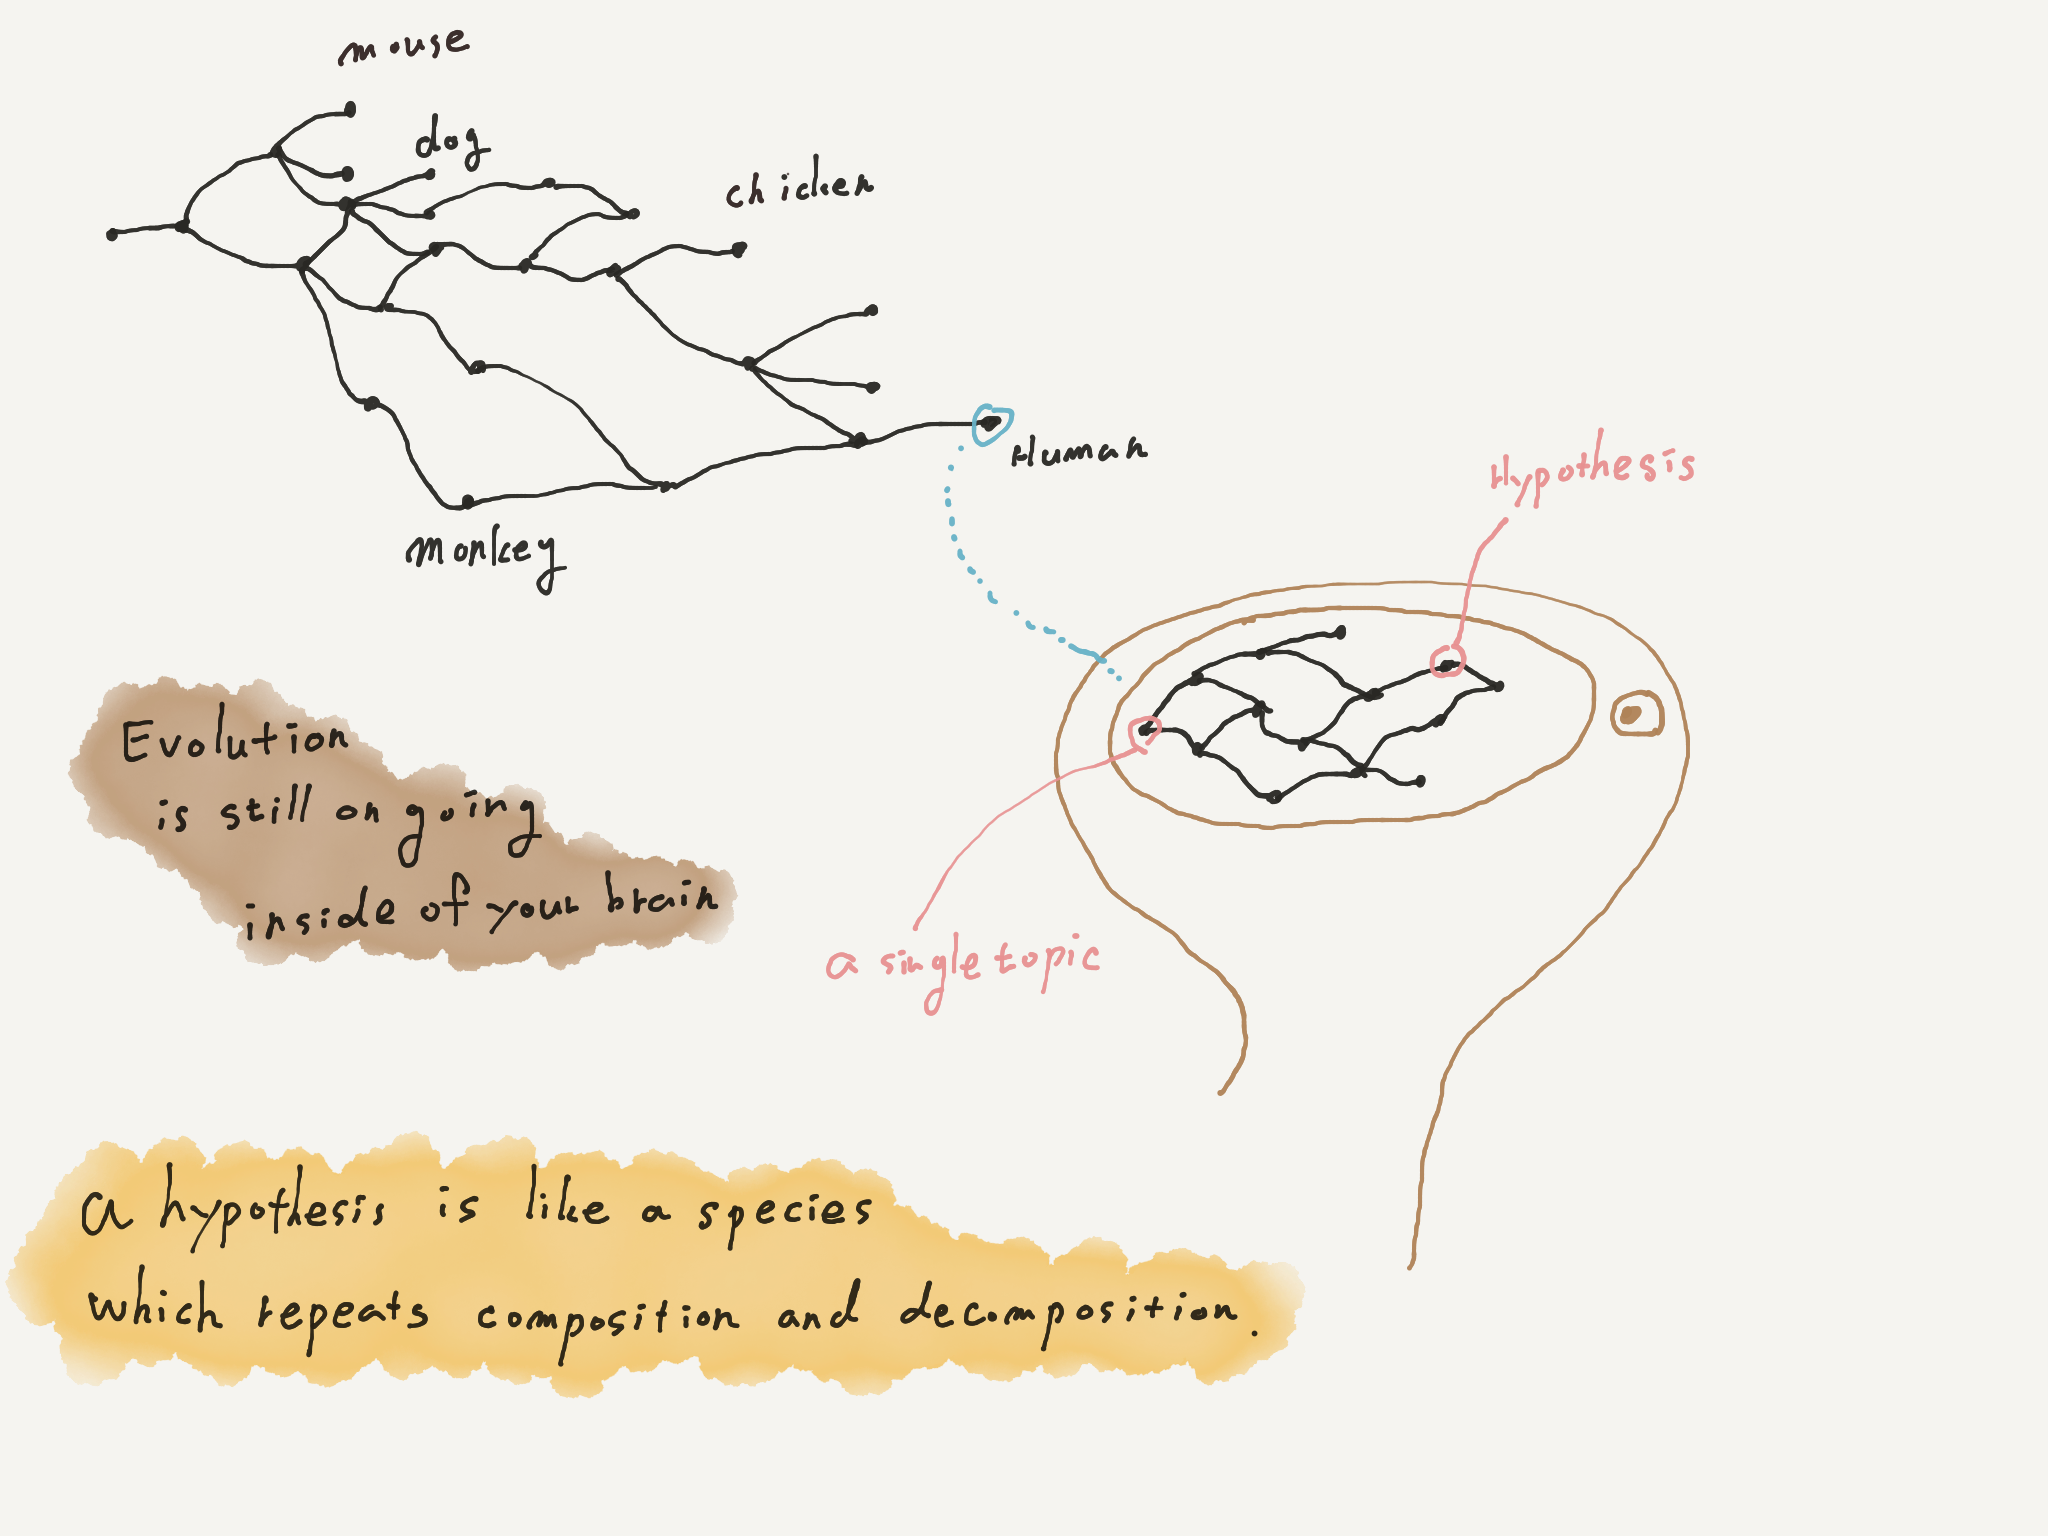 mouse
dog
chicken
Human
monkey
Hypothesis
Evolution
is still on going
inside of your brain
a single topic
a hypothesis is like a species
which repeats composition and decomposition.